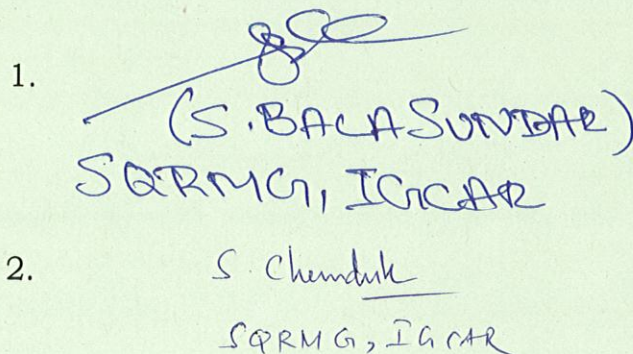 1.
(S. BALASUNDAR)
SQRMG, IGCAR
2.
S.
SQRMG, IGCAR